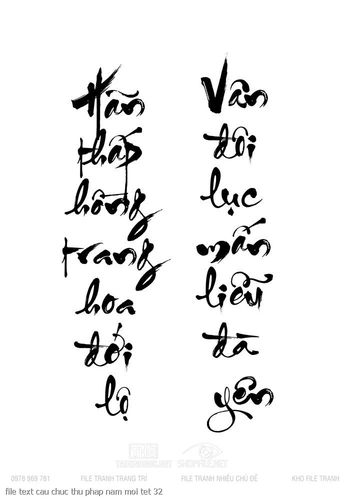 Hãn thấp hồng trang hoa đới lộ
Vân đôi lục mấn liễu đà yên
SHOPFILE.NET
0978 969 761 FILE TRANH TRANG TRÍ FILE TRANH NHIỀU CHỦ ĐỀ KHO FILE TRANH
file text cau chuc thu phap nam moi tet 32